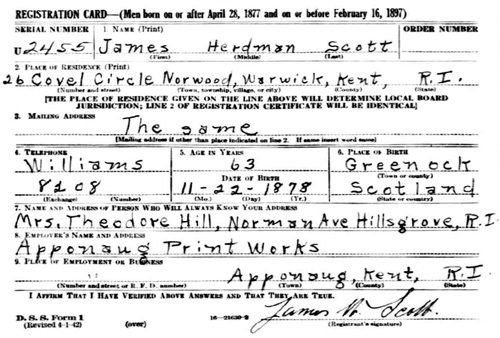 REGISTRATION CARD—(Men born on or after April 28, 1877 and on or before February 16, 1897)
SERIAL NUMBER 1. NAME (Print) ORDER NUMBER
U2455 James Herdman Scott
(First) (Middle) (Last)
2. PLACE OF RESIDENCE (Print)
26 Covel Circle Norwood, Warwick, Kent, R.I.
(Number and street) (Town, township, village, or city) (County) (State)
[THE PLACE OF RESIDENCE GIVEN ON THE LINE ABOVE WILL DETERMINE LOCAL BOARD
JURISDICTION; LINE 2 OF REGISTRATION CERTIFICATE WILL BE IDENTICAL]
3. MAILING ADDRESS
The same
[Mailing address if other than place indicated on line 2. If same insert word same]
4. TELEPHONE 5. AGE IN YEARS 6. PLACE OF BIRTH
Williams 63 Greenock
DATE OF BIRTH (Town or county)
8208 11-22-1878 Scotland
(Exchange) (Number) (Mo.) (Day) (Yr.) (State or country)
7. NAME AND ADDRESS OF PERSON WHO WILL ALWAYS KNOW YOUR ADDRESS
Mrs. Theodore Hill, Norman Ave Hillsgrove, R.I.
8. EMPLOYER'S NAME AND ADDRESS
Apponaug Print Works
9. PLACE OF EMPLOYMENT OR BUSINESS
Apponaug, Kent, R.I.
(Number and street or R. F. D. number) (Town) (County) (State)
I AFFIRM THAT I HAVE VERIFIED ABOVE ANSWERS AND THAT THEY ARE TRUE.
D. S. S. Form 1
(Revised 4-1-42) (over) James Scott
(Registrant's signature)